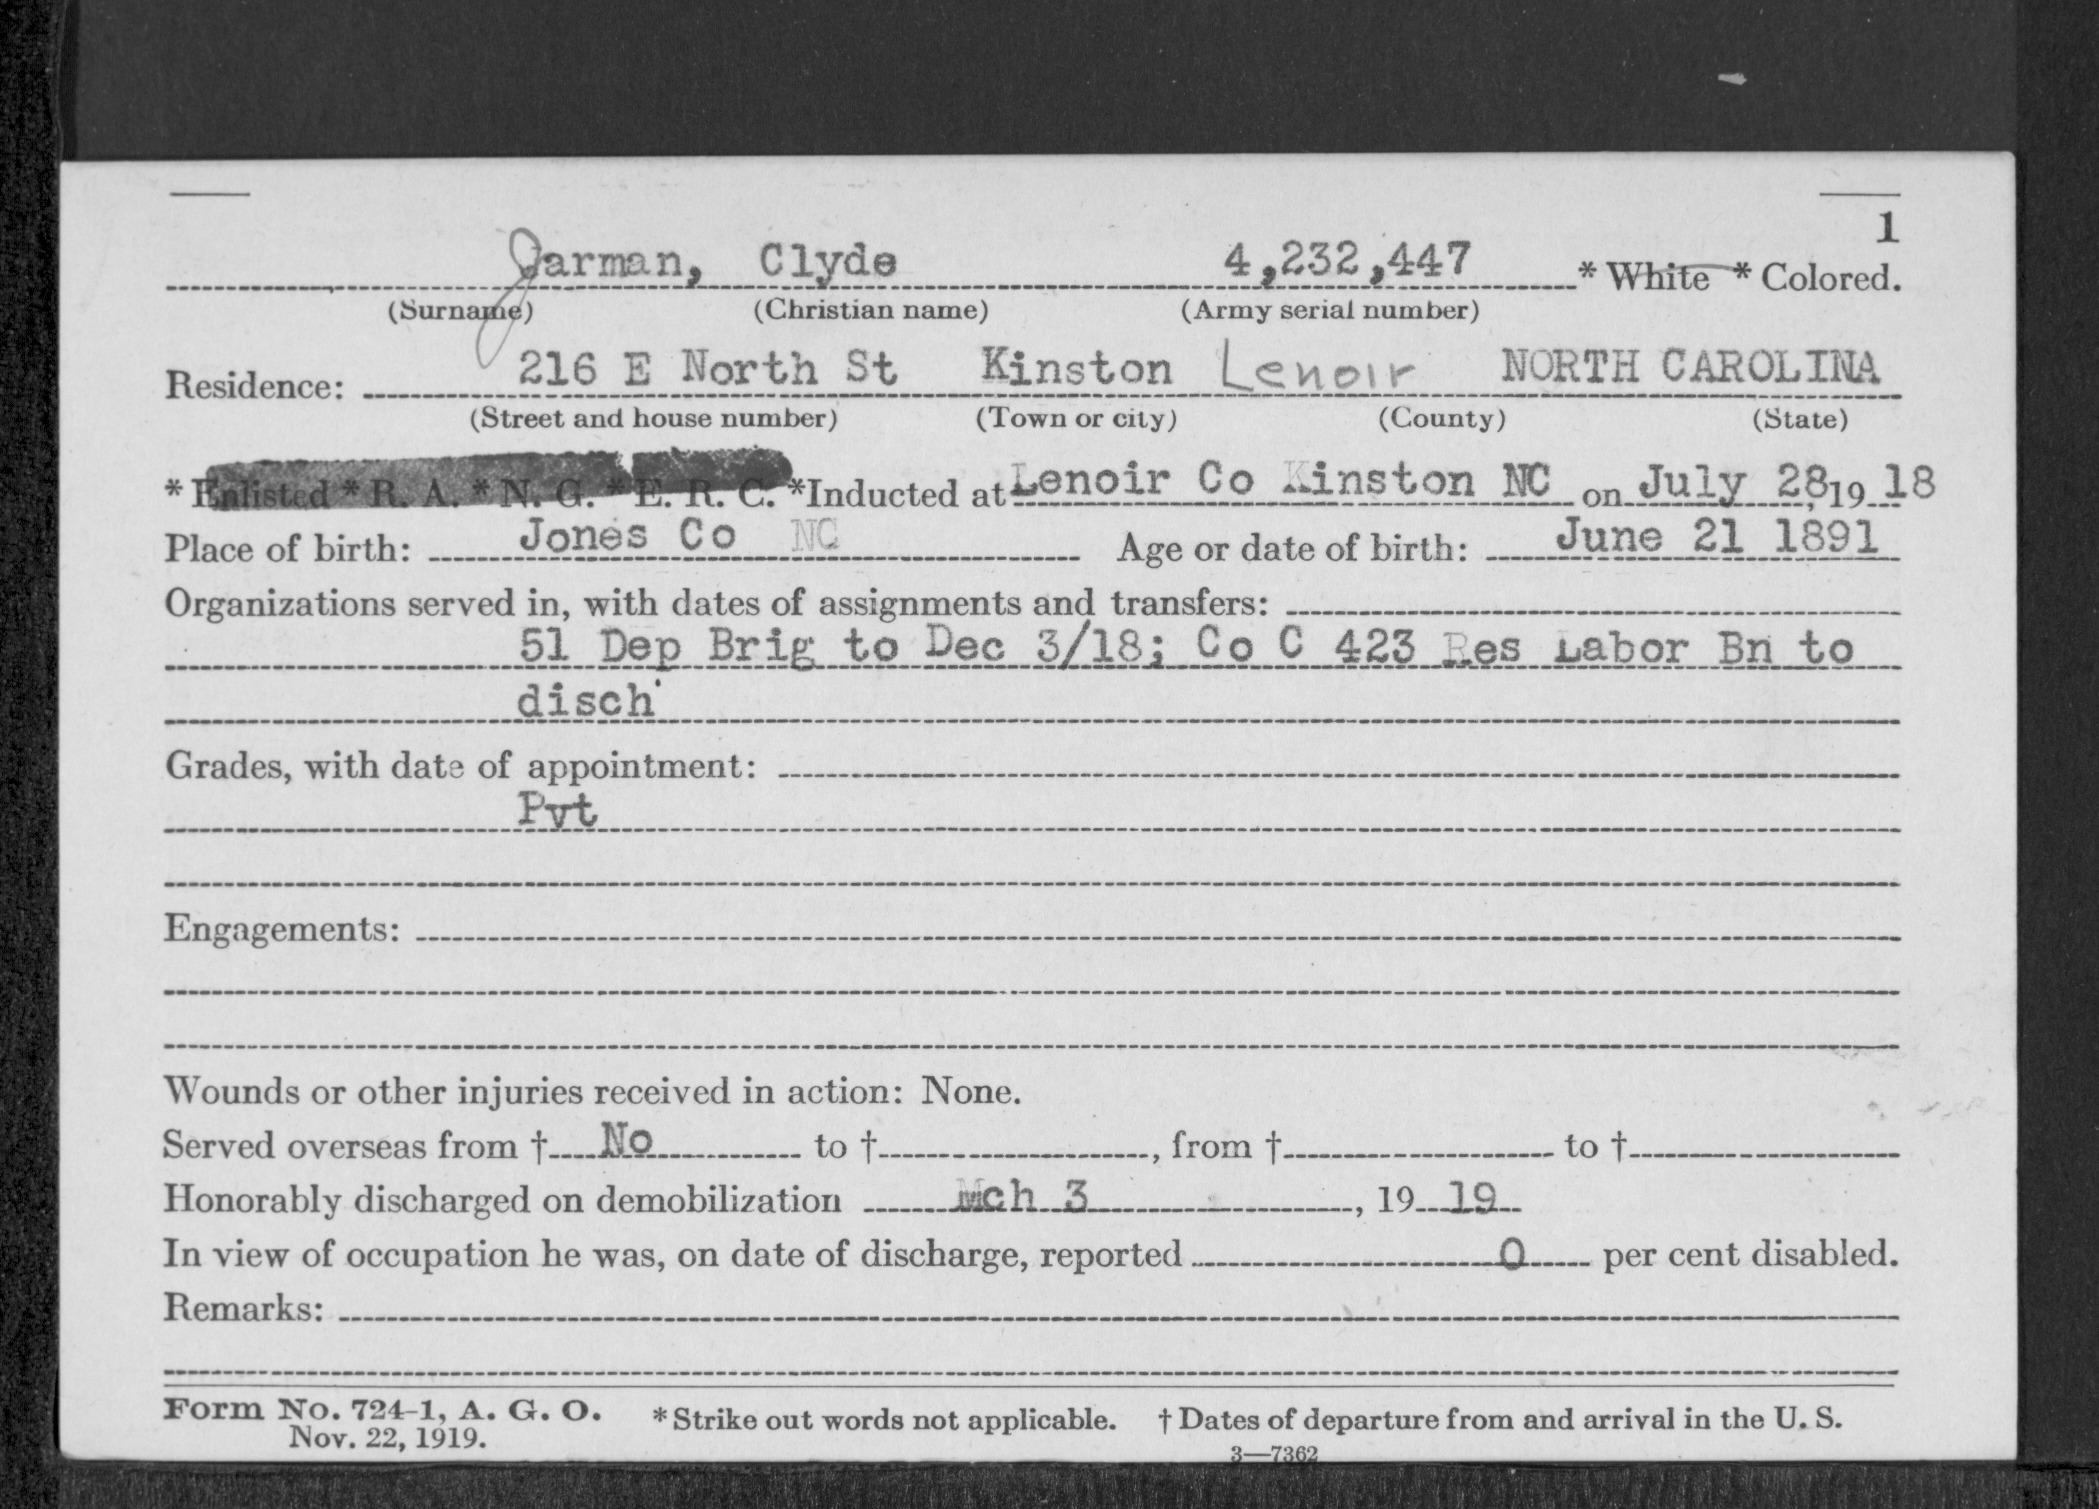 1
Jarman, Clyde 4,232,447 * White * Colored.
(Surname) (Christian name) (Army serial number)
Residence: 216 E North St Kinston Lenoir NORTH CAROLINA
(Street and house number) (Town or city) (County) (State)
* Enlisted * R. A. * N. G. * E. R. C. *Inducted at Lenoir Co Kinston NC on July 28, 19 18
Place of birth: Jones Co NC Age or date of birth: June 21 1891
Organizations served in, with dates of assignments and transfers:
51 Dep Brig to Dec 3/18; Co C 423 Res Labor Bn to
disch
Grades, with date of appointment:
Pvt
Engagements:
Wounds or other injuries received in action: None.
Served overseas from † No to † , from † to †
Honorably discharged on demobilization Mch 3 , 19 19
In view of occupation he was, on date of discharge, reported 0 per cent disabled.
Remarks:
Form No. 724-1, A. G. O. * Strike out words not applicable. † Dates of departure from and arrival in the U. S.
Nov. 22, 1919.
3—7362